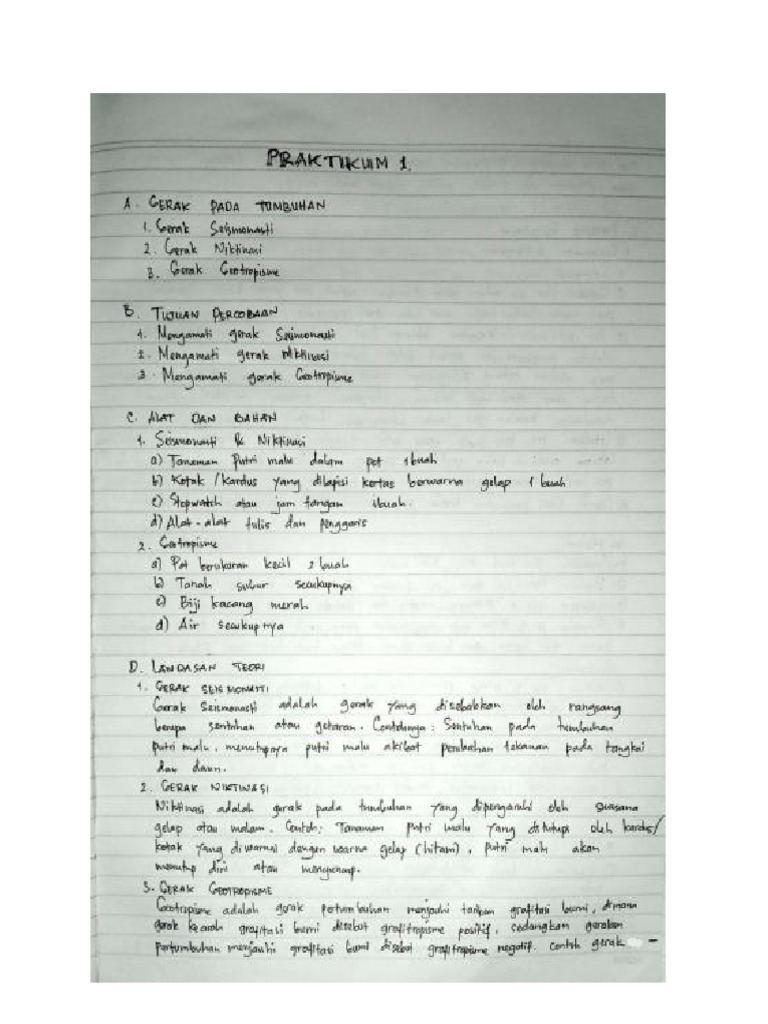 PRAKTIKUM 1.
A. GERAK PADA TUMBUHAN
1. Gerak Seismonasti
2. Gerak Niktinasi
3. Gerak Geotropisme
B. TUJUAN PERCOBAAN
1. Mengamati gerak Seismonasti
2. Mengamati gerak Niktinasi
3. Mengamati gerak Geotropisme
C. ALAT DAN BAHAN
1. Seismonasti & Niktinasi
a) Tanaman Putri malu dalam pot 1 buah
b) Kotak / Kardus yang dilapisi kertas berwarna gelap 1 buah
c) Stopwatch atau jam tangan 1 buah.
d) Alat-alat tulis dan penggaris
2. Geotropisme
a) Pot berukuran kecil 2 buah
b) Tanah subur secukupnya
c) Biji kacang merah
d) Air secukupnya
D. LANDASAN TEORI
1. GERAK SEISMONASTI
Gerak Seismonasti adalah gerak yang disebabkan oleh rangsang
berupa sentuhan atau getaran. Contohnya: Sentuhan pada tumbuhan
putri malu, menutupnya putri malu akibat perubahan tekanan pada tangkai
dan daun.
2. GERAK NIKTINASI
Niktinasi adalah gerak pada tumbuhan yang dipengaruhi oleh suasana
gelap atau malam. Contoh: Tanaman Putri malu yang ditutupi oleh kardus/
kotak yang diwarnai dengan warna gelap (hitam), putri malu akan
menutup diri atau menguncup.
3. GERAK GEOTROPISME
Geotropisme adalah gerak pertumbuhan menjauhi tarikan grafitasi bumi, dimana
gerak kearah grafitasi bumi disebut grafitropisme positif, sedangkan gerakan
pertumbuhan menjauhi grafitasi bumi disebut grafitropisme negatif. contoh gerak -